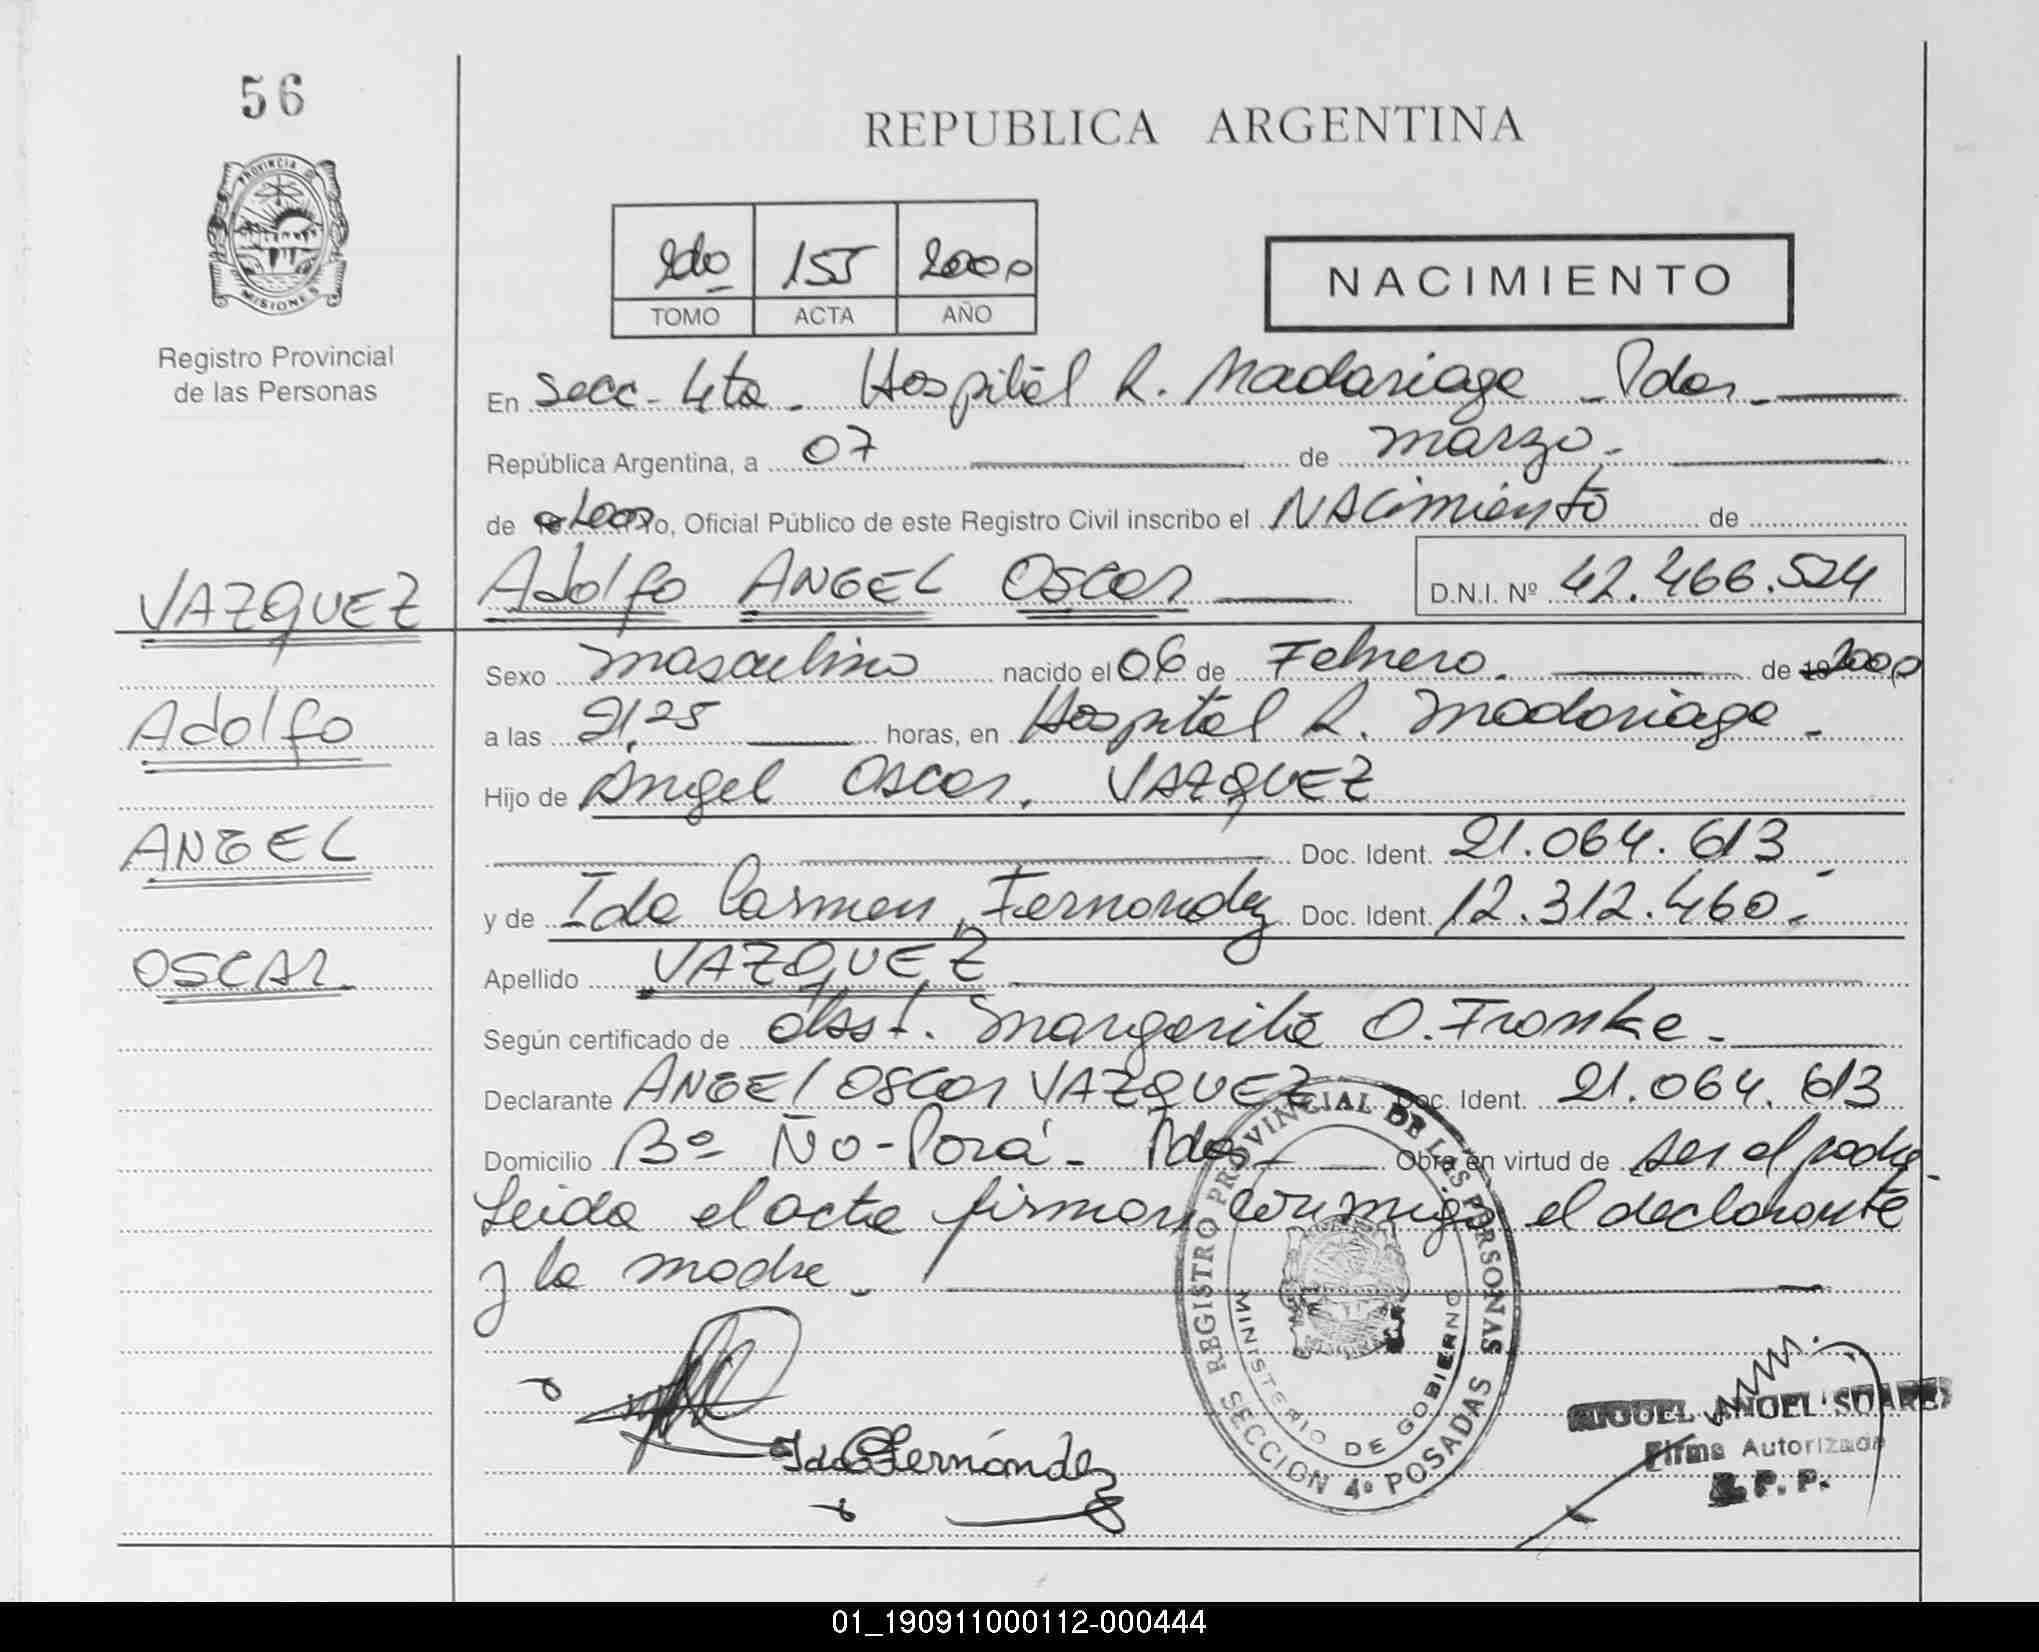 56
PROVINCIA DE
MISIONES
Registro Provincial
de las Personas
VAZQUEZ
Adolfo
ANGEL
OSCAR
REPUBLICA ARGENTINA
2do 155 2000
TOMO ACTA AÑO
NACIMIENTO
En Secc - 4ta - Hospital R. Madariaga - Pdas -
República Argentina, a 07 de marzo -
de 2000 yo, Oficial Público de este Registro Civil inscribo el NACimiento de
Adolfo ANGEL OSCAR D.N.I. Nº 42.466.524
Sexo masculino nacido el 06 de Febrero. de 2000
a las 21,25 horas, en Hospital R. Madariaga -
Hijo de Angel Oscar. VAZQUEZ
Doc. Ident. 21.064.613
y de Ida Carmen Fernandez Doc. Ident. 12.312.460.-
Apellido VAZQUEZ
Según certificado de obst. Margarita O. Franke -
Declarante ANGEL OSCAR VAZQUEZ Doc. Ident. 21.064.613
Domicilio Bº Ñu-Porá - Pdas - Obra en virtud de ser el padre -
Leida el acta firman conmigo el declarante
y la madre -
REGISTRO PROVINCIAL DE LAS PERSONAS
MINISTERIO DE GOBIERNO
SECCION 4º POSADAS
Ida C Fernández
MIGUEL ANGEL SUAREZ
Firma Autorizada
R. P. P.
01_190911000112-000444